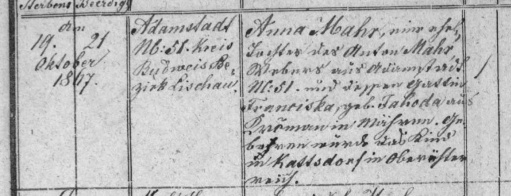 Sterbens Beerdigg
am
19. 21
Oktober
1867.
Adamstadt
No: 51. Kreis
Budweis Be-
zirk Lischau.
Anna Mahr, eine ehel.
Tochter des Anton Mahr
Webers aus Adamstadt
No: 51. und dessen Gattin
Franciska, geb. Jahoda aus
Kroman in Mähren. Ge-
bohren wurde das Kind
in Kattsdorf in Oberöster
reich.